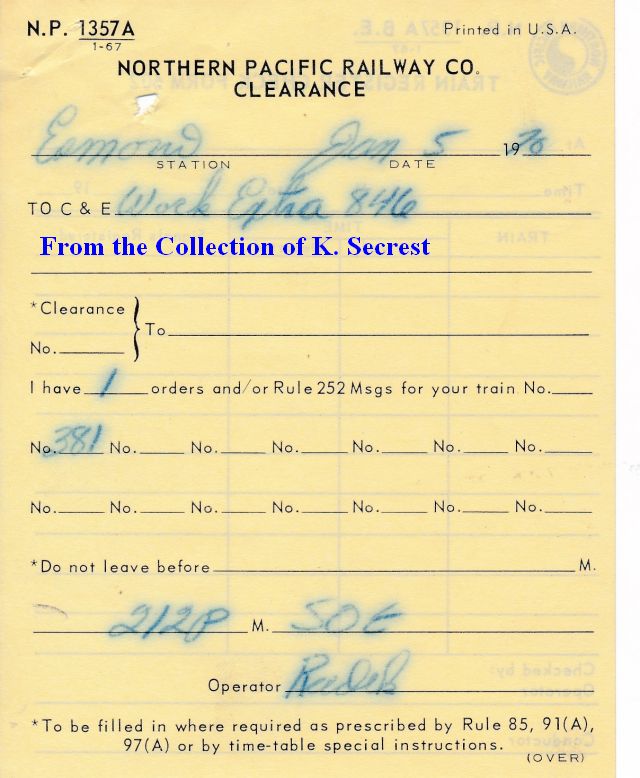 N.P. 1357A Printed in U.S.A.
1-67
NORTHERN PACIFIC RAILWAY CO.
CLEARANCE
Esmond Jan 5 1970
STATION DATE
TO C & E Work Extra 846
From the Collection of K. Secrest
*Clearance
No. To
I have 1 orders and/or Rule 252 Msgs for your train No.
No. 381 No. No. No. No. No. No.
No. No. No. No. No. No. No.
*Do not leave before M.
212P M. SOE
Operator
*To be filled in where required as prescribed by Rule 85, 91(A),
97(A) or by time-table special instructions.
(OVER)